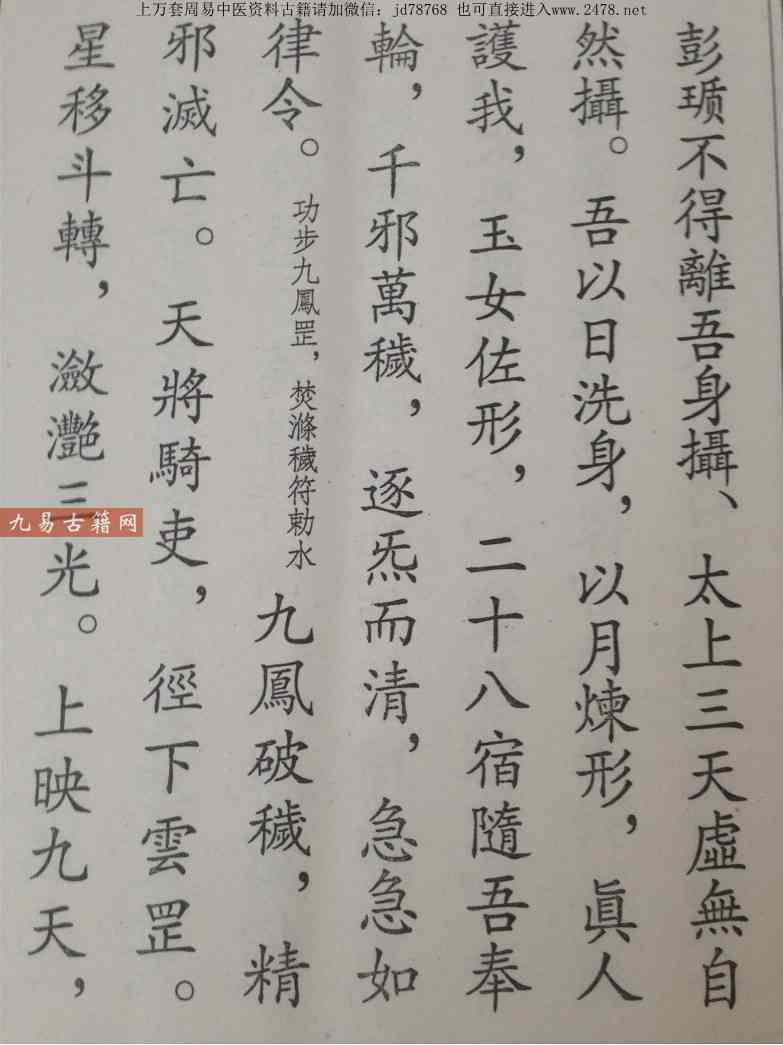 上万套周易中医资料古籍请加微信：jd78768 也可直接进入www.2478.net
彭瓆不得離吾身攝、太上三天虛無自
然攝。吾以日洗身，以月煉形，眞人
護我，玉女佐形，二十八宿隨吾奉
輪，千邪萬穢，逐炁而清，急急如
律令。功步九鳳罡，焚滌穢符勅水九鳳破穢，精
邪滅亡。天將騎吏，徑下雲罡。
星移斗轉，瀲灩三光。上映九天，
九易古籍网